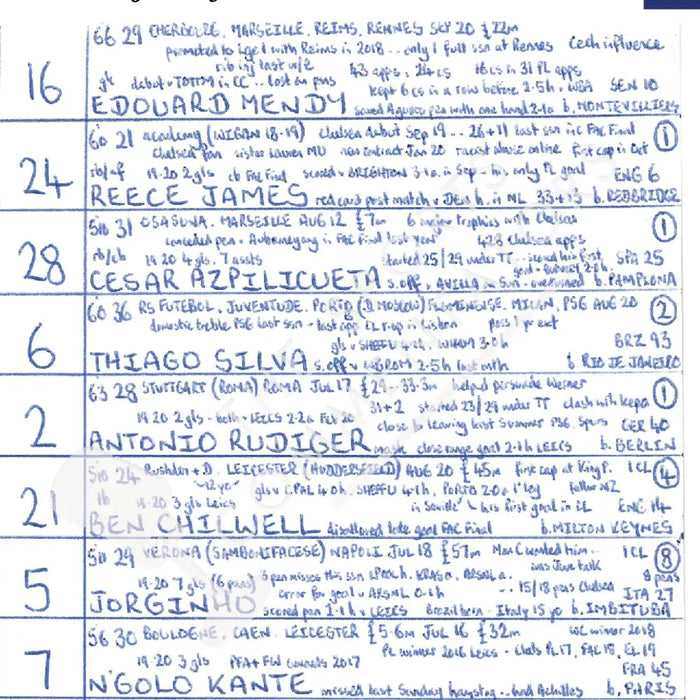 66 29 CHERBOURG, MARSEILLE, REIMS, RENNES SEP 20 £22m
promoted to Lge 1 with Reims in 2018 .. only 1 full ssn at Rennes Cech influence
rib inj last w/e 43 apps, 24 cs 16 cs in 31 PL apps
gk debut v TOTTM in CC .. lost on pens kept 6 cs in a row before 2-5 h v WBA SEN 10
16 EDOUARD MENDY saved Aguero pen with one hand 2-1a b. MONTEVILLIERS
60 21 academy (WIGAN 18-19) Chelsea debut Sep 19 .. 26+11 last ssn inc FAC Final 1
Chelsea fan sister Lauren MU new contract Jan 20 racist abuse online first cap in Oct
rb/rf 19-20 2 gls cb FAC Final scored v BRIGHTON 3-1a in Sep - his only PL goal ENG 6
24 REECE JAMES red card post match v Den h. in NL 33+13 b. REDBRIDGE
510 31 OSASUNA, MARSEILLE AUG 12 £7m 6 major trophies with Chelsea 1
conceded pen v Aubameyang in FAC Final last year 428 Chelsea apps
rb/cb 19-20 4 gls, 7 assts started 25/29 under TT .. scored his first SPA 25
goal v BURNLEY 2-0h
28 CESAR AZPILICUETA s.off v AVILLA in Jan - overturned b. PAMPLONA
60 36 RS FUTEBOL, JUVENTUDE, PORTO (D MOSCOW) FLUMINENSE, MILAN, PSG AUG 20 2
domestic treble PSG last ssn - last app CL r-up in Lisbon poss 1 yr ext
gls v SHEFFU 4-1h, WHAM 3-0h BRZ 93
6 THIAGO SILVA s.off v WBROM 2-5h last mth b. RIO DE JANEIRO
63 28 STUTTGART (ROMA) ROMA JUL 17 £29-33.3m helped persuade Werner 1
31+2 started 23/29 under TT clash with Kepa
19-20 2 gls - both v LEICS 2-2a Feb 20 close to leaving last summer PSG, Spurs GER 40
2 ANTONIO RUDIGER mask close range goal 2-1h LEICS b. BERLIN
510 24 Rushden + D. LEICESTER (HUDDERSFIELD) AUG 20 £45m first cap at King P. 1CL 4
12yo gls v CPAL 4-0h, SHEFFU 4-1h, PORTO 2-0a 1st leg father NZ
lb 19-20 3 gls Leics in Seville his first goal in CL ENG 14
21 BEN CHILWELL disallowed late goal FAC Final b. MILTON KEYNES
511 29 VERONA (SAMBONIFACESE) NAPOLI JUL 18 £57m Man C wanted him .. 1CL 8
was Juve talk 8 pens
19-20 7 gls (6 pens) 3 pen misses this ssn LPOOL h, KRAS a, ARSNL a.
error for goal v ARSNL 0-1h .. 15/18 pens Chelsea ITA 27
5 JORGINHO scored pen 2-1h v LEICS Brazil born - Italy 15 yo b. IMBITUBA
56 30 BOULOGNE, CAEN, LEICESTER £5.6m JUL 16 £32m WC winner 2018
PL winner 2016 Leics - Chels PL 17, FAC 18, EL 19
19-20 3 gls PFA + FW awards 2017 FRA 45
7 N'GOLO KANTE missed last Sunday hamstng .. had Achilles b. PARIS